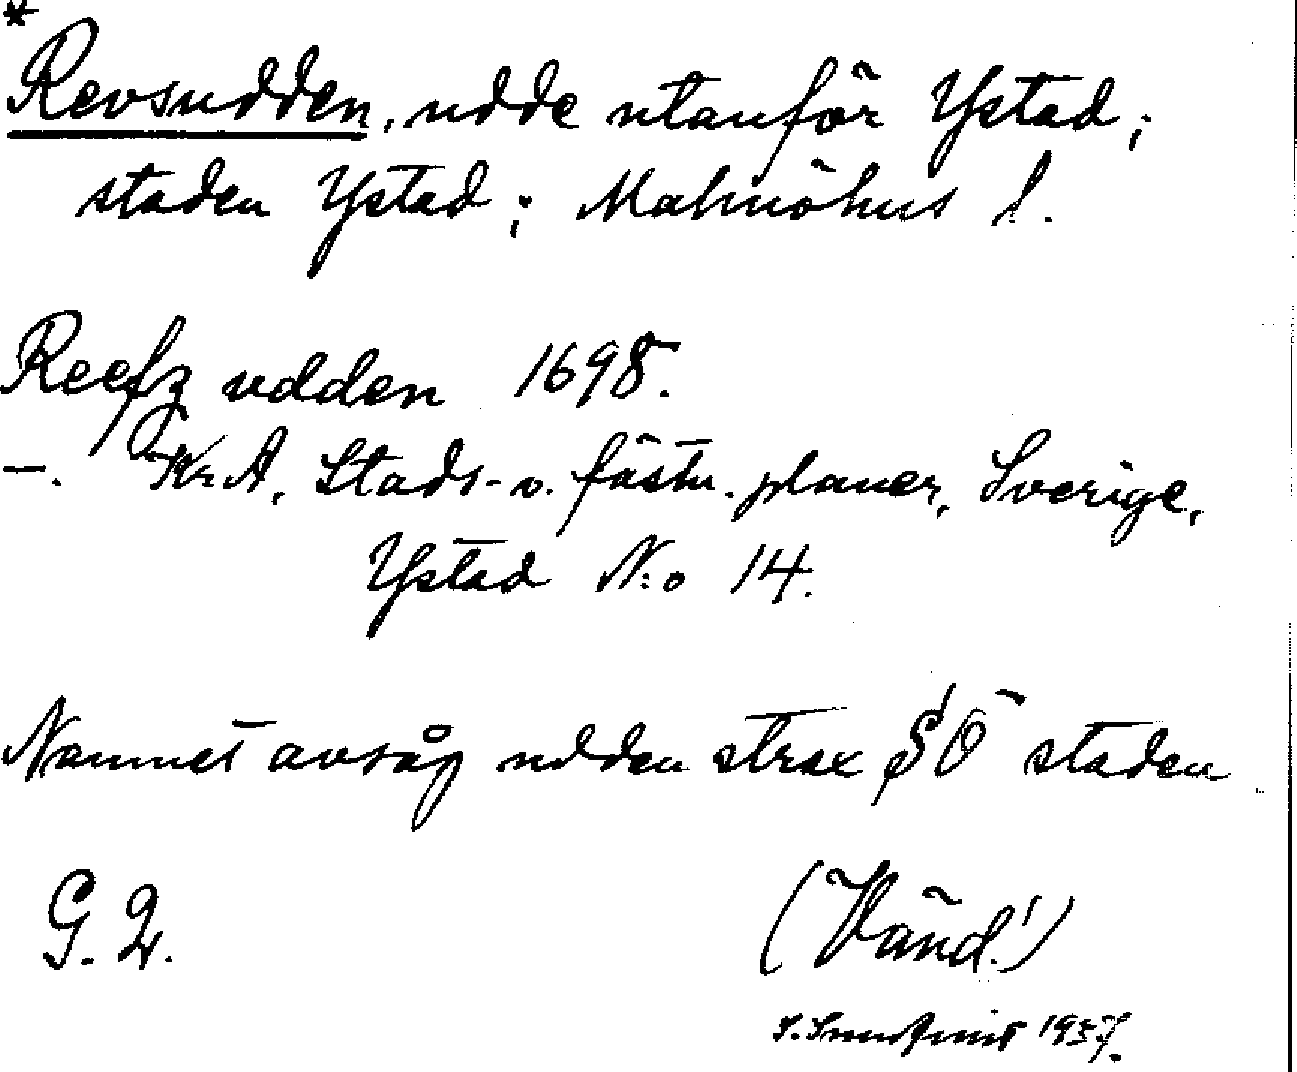 *
Revsudden, udde utanför Ystad;
staden Ystad; Malmöhus l.
Reefz udden 1698.
—. Kr. A, Stads- o. fästn. planer, Sverige,
Ystad N:o 14.
Namnet avsåg udden strax SÖ staden
G. 2.
(Vänd!)
1937.